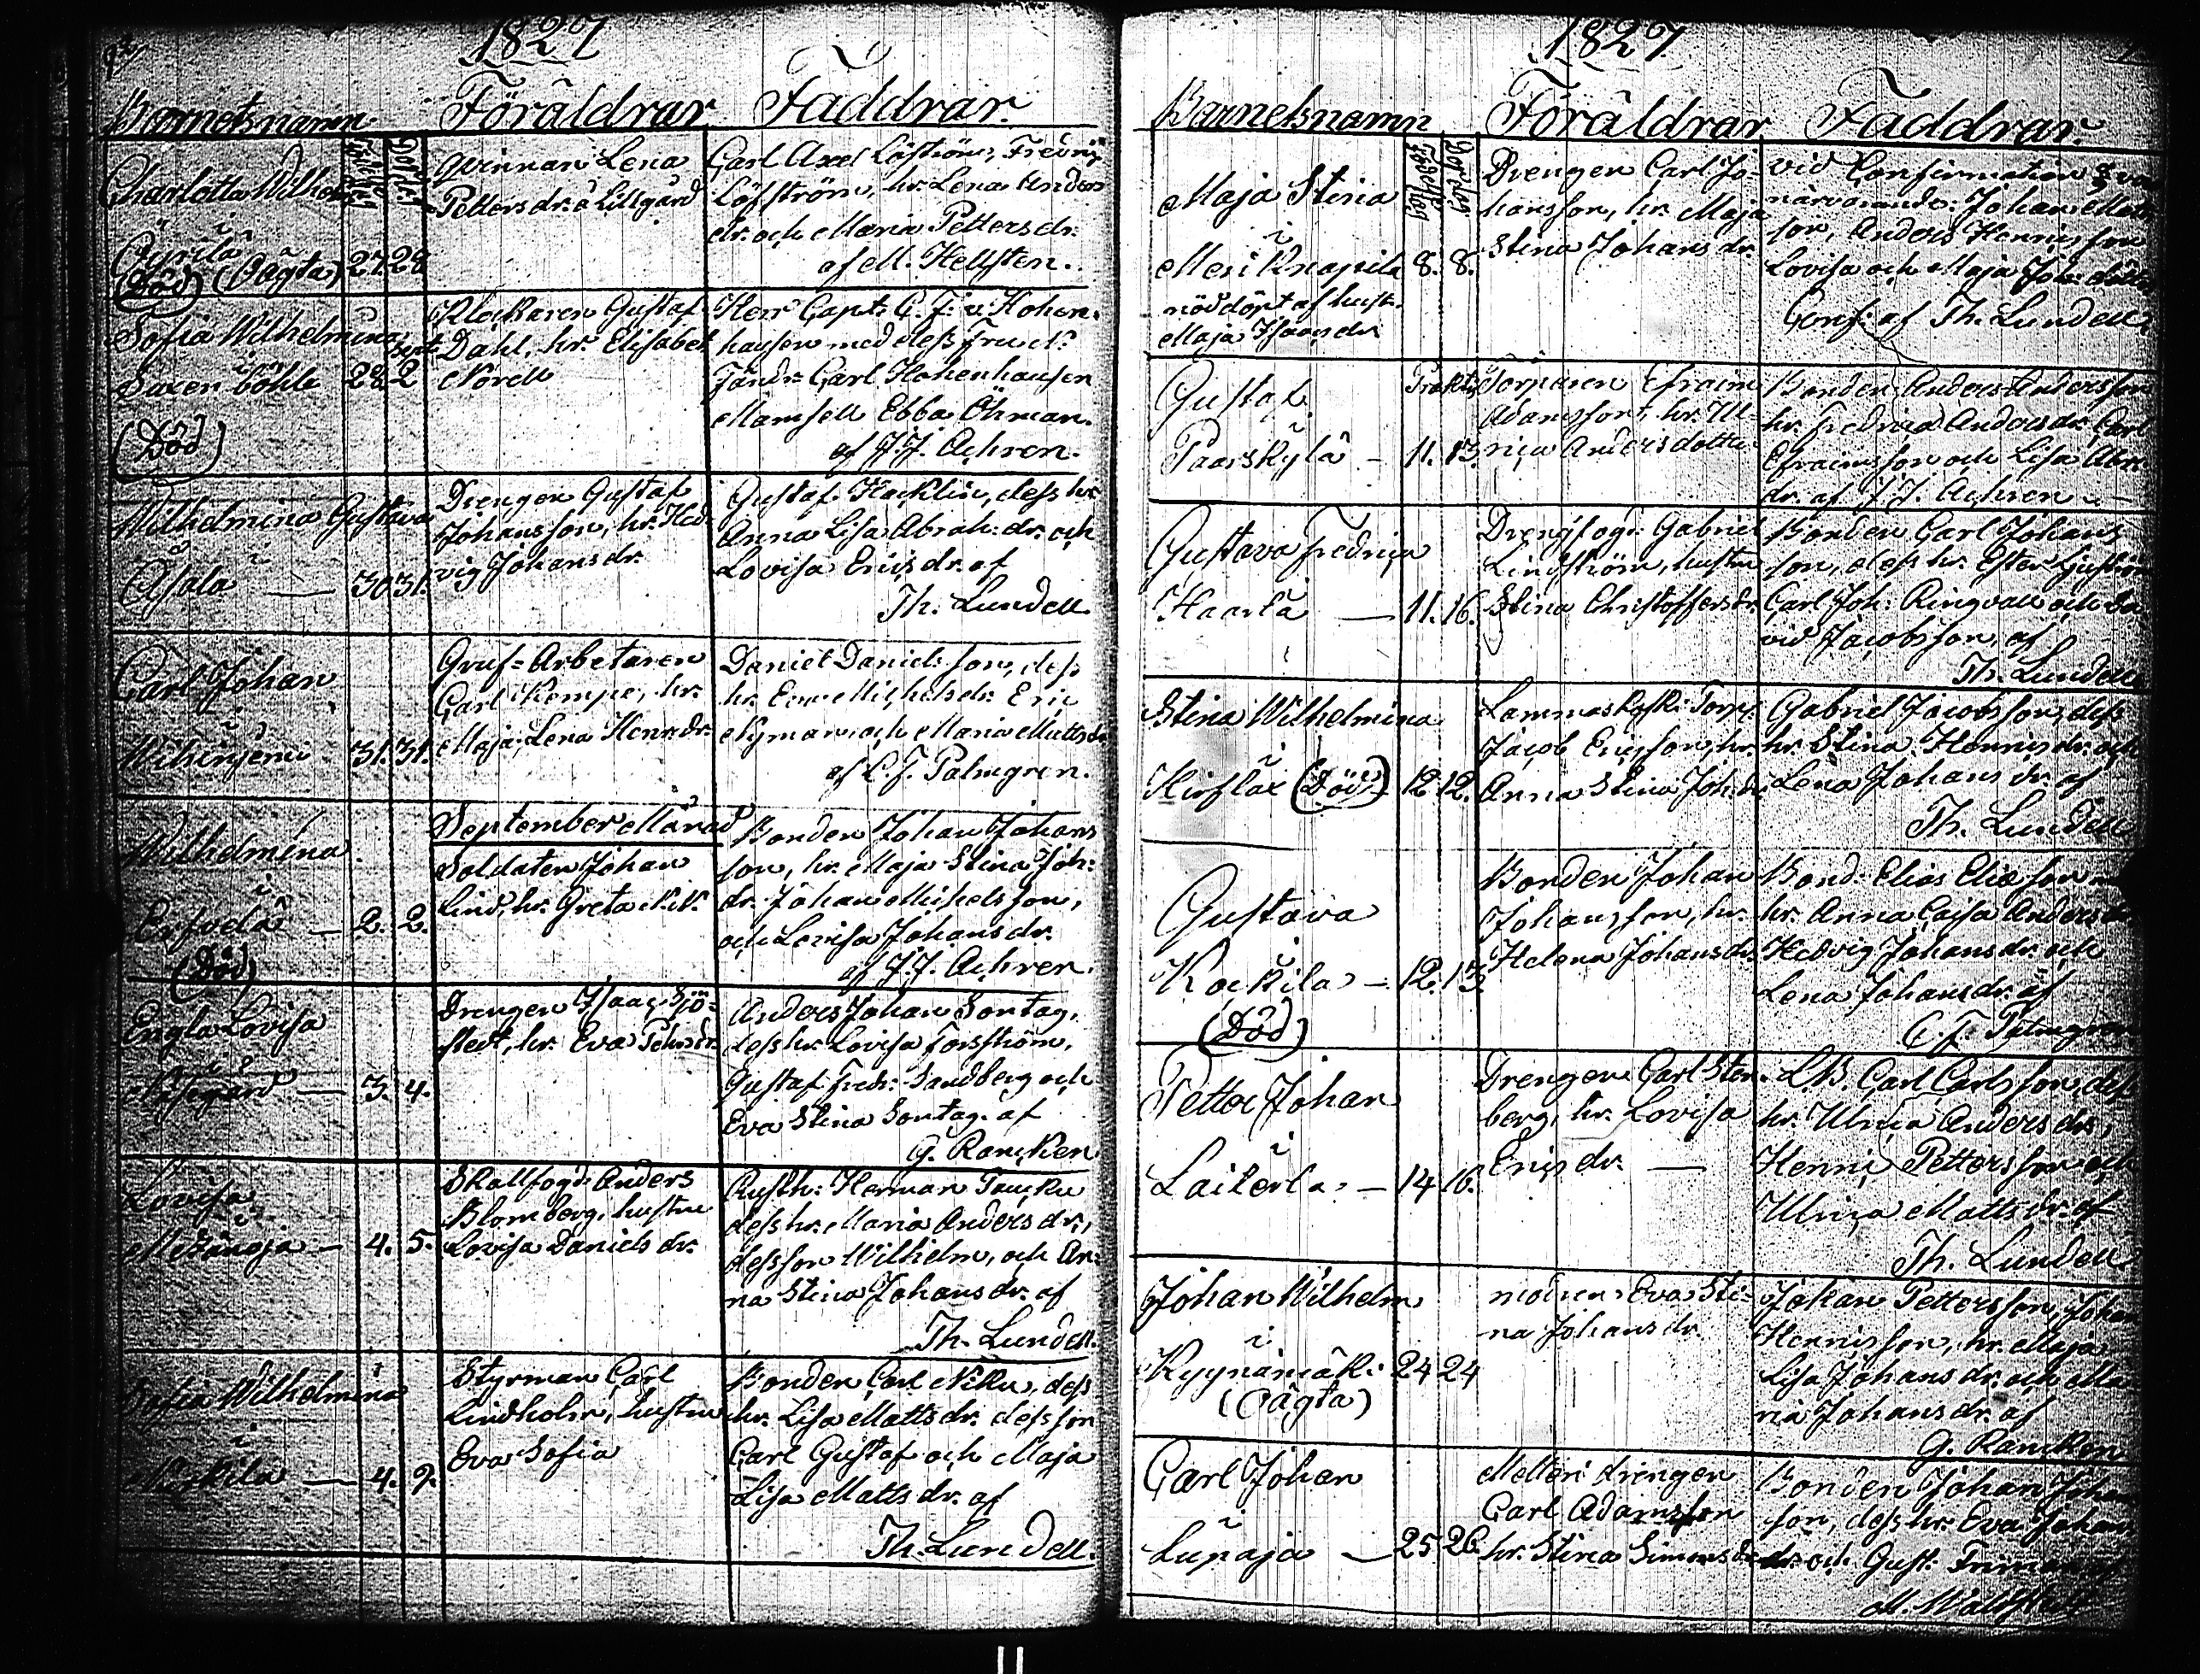 1827
Barnetsnamn Föräldrar Faddrar.
Födelsedag Dopdag
Charlotta Wilhelm
i
Kyrilä
(Död) (Oägta) 27. 28
Qvinnan Lena
Petters dr. å Lillgård
Carl Axel Löfström, Fredric
Löfström, hr. Lena Anders
dr. och Maria Petters dr.
af M. Hellsten.
Sofia Wilhelmina
i Sept.
Saxen böhle 28. 2
(Död)
Klockaren Gustaf
Dahl, hr. Elisabet
Norell
Herr Capt. C. F. v. Hohen-
hausen med dess Fru
Fändr. Carl Hohenhausen
Mamsell Ebba Öhman.
af J. J. Achren.
Wilhelmina Gustava
i
Åsala — 30 31.
Drengen Gustaf
Johansson, hr. Hed-
vig Johans dr.
Gustaf Hacklin, dess hr.
Anna Lisa Abrah: dr. och
Lovisa Erics dr. af
Th. Lundell.
Carl Johan
i
31. 31.
Gruf-Arbetaren
Carl Kempe, hr.
Maja Lena Henr. dr.
Daniel Daniels son, dess
hr. Eva Michels dr. Eric
Nyman och Maria Matts dr.
af C. F. Palmgren.
September Månad
Wilhelmina
i
Erfvelä — 2. 2.
(Död)
Soldaten Johan
Lind, hr. Greta N.N.
Bonden Johan Johans
son, hr. Maja Stina Joh:
dr. Johan Michels son,
och Lovisa Johans dr.
af J. J. Achren.
Engla Lovisa
i
Näsegård — 3. 4.
Drengen Isaac Sjö-
stedt, hr. Eva Pehrs dr.
Anders Johan Sontag,
dess hr. Lovisa Forsström,
Gustaf Fredr: Sandberg och
Eva Stina Sontag. af
G. Rancken
Lovisa
i
4. 5.
Skallfogd: Anders
Blomberg, hustru
Lovisa Daniels dr.
Rusth: Herman Pancku
dess hr. Maria Anders dr.,
dess son Wilhelm, och An-
na Stina Johans dr. af
Th. Lundell.
Sofia Wilhelmina
i
Kärkila — 4. 9.
Styrman Carl
Lindholm, hustru
Eva Sofia
Bonden Carl Niku, dess
hr. Lisa Matts dr. dess son
Carl Gustaf och Maja
Lisa Matts dr. af
Th. Lundell.
1827.
Barnetsnamn Föräldrar Faddrar.
Födelsedag Dopdag
Maja Stina
i
Meri Knapila 8. 8.
nöddöpt af hust.
Maja Isaacs dr.
Drengen Carl Jo-
hansson, hr. Maja
Stina Johans dr.
vid Confirmation
närvarande: Johan Matts
son, Anders Henrics son
Lovisa och Maja Joh: döttr.
Conf: af Th. Lundell.
Gustaf
i
Paarskylä — 11. 13.
Torparen Efraim
Adamsson, hr. Ul-
rica Andersdotter
Bonden Anders Anders son
hr. Fredrica Anders dr. Carl
Efraimsson och Lisa Abr.
dr. af J. J. Achren —
Gustava Fredrica
i
Haarla — 11. 16.
Drengfogd: Gabriel
Lindström, hustru
Stina Christoffers dr.
Bonden Carl Johans
son, dess hr. Ester Ljuström
Carl Joh: Ringvall och Da-
vid Jacobsson, af
Th. Lundell
Stina Wilhelmina
i
Kirflax (Död) 12 12.
Torp:
Jacob Ericsson, hr.
Anna Stina Joh: dr.
Gabriel Jacobs son, dess
hr. Stina Henrics dr. och
Lena Johans dr. af
Th. Lundell
Gustava
i
Kockila — 12. 13.
(Död)
Bonden Johan
Johansson, hr.
Helena Johans dr.
Bond: Elias Elias son
hr. Anna Cajsa Anders dr.
Hedvig Johans dr. och
Lena Johans dr. af
C. F. Palmgren
Petter Johan
i
Laiterla — 14 16.
Drengen Carl Sten-
berg, hr. Lovisa
Erics dr. —
L.B. Carl Carls son, dess
hr. Ulrica Anders dr.,
Henric Petters son och
Ulrica Matts dr. af
Th. Lundell
Johan Wilhelm
i
Kygnämäki 24 24
(Oägta)
modren Eva Sti-
na Johans dr.
Johan Pettersson, Johan
Henrics son, hr. Maja
Lisa Johans dr. och Ma-
ria Johans dr. af
G. Rancken
Carl Johan
i
Lupaja — 25 26.
drengen
Carl Adamsson
hr. Stina Simons dr.
Bonden Johan Johans
son, dess hr. Eva Johans
dr. och Gust: